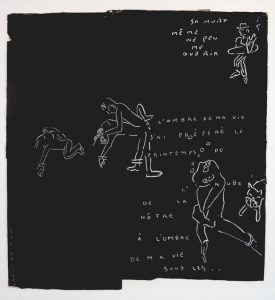 SA MORT
MÊME
NE PEU
ME
GUÉRIR
L'OMBRE DE MA VIE
J'AI PROFÉRÉ LE
PRINTEMPS DE
L'AUBE
DE LA
NÔTRE
À L'OMBRE
DE MA VIE
SOUS LES..